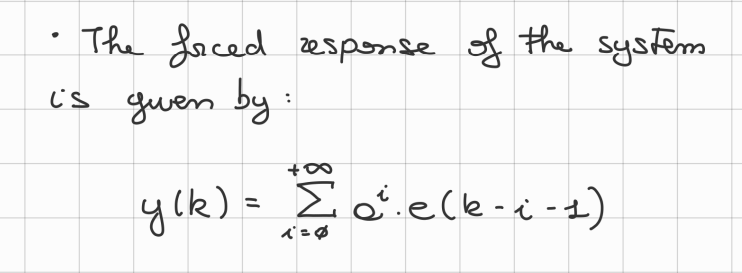 · The forced response of the system
is given by:
y(k) = +∞ Σ i=0 a^i · e(k - i - 1)